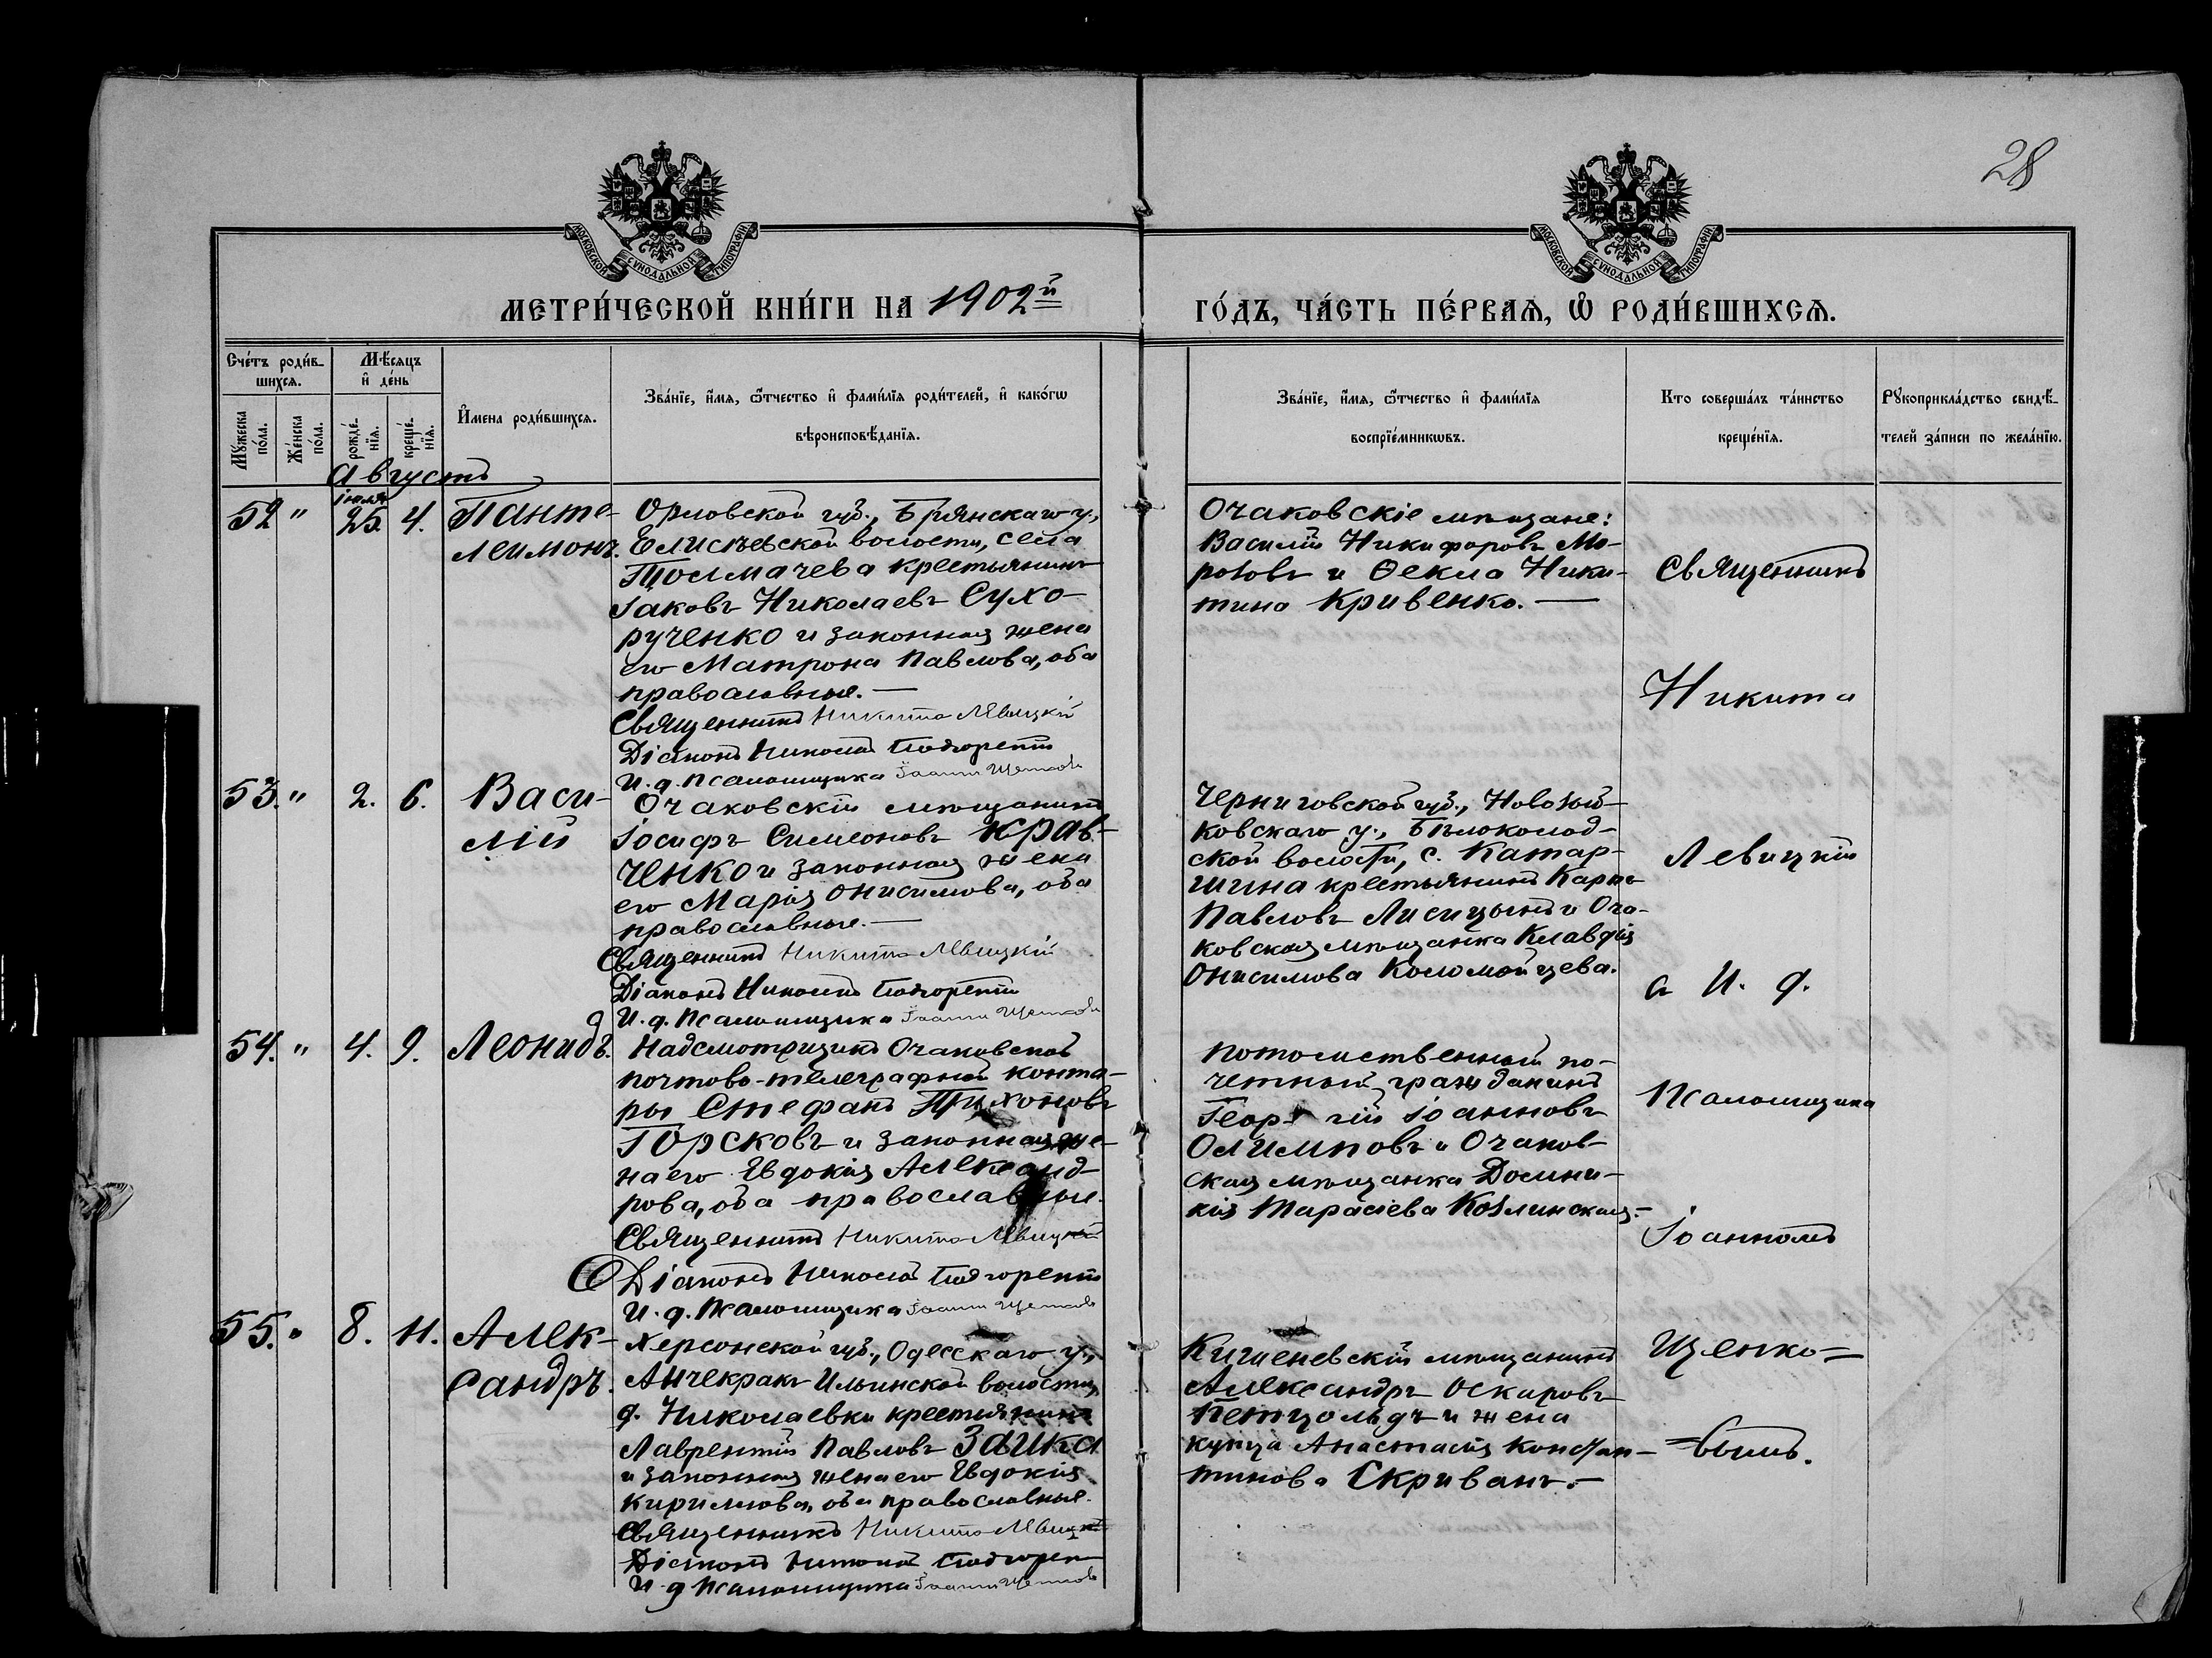 28
МОСКОВСКОЙ СУНОДАЛЬНОЙ ТИПОГРАФІИ
МОСКОВСКОЙ СУНОДАЛЬНОЙ ТИПОГРАФІИ
МЕТРИ́ЧЕСКОЙ КНИ́ГИ НА 1902й
ГО́ДЪ, ЧА́СТЬ ПЕ́РВАѦ, Ѡ РОДИ́ВШИХСѦ.
Сче́тъ роди́в-
шихсѧ.
Мꙋ́жеска по́ла.
Же́нска по́ла.
Мѣ́сяцъ
и де́нь
рожде́нїѧ.
креще́нїѧ.
Имена роди́вшихсѧ.
Зва́нїе, и́мѧ, ѻ́тчество и фами́лїѧ роди́телей, и како́гѡ
вѣроисповѣ́данїѧ.
Зва́нїе, и́мѧ, ѻ́тчество и фами́лїѧ
воспрїе́мникѡвъ.
Кто соверша́лъ та́инство
креще́нїѧ.
Рꙋкоприкла́дство свидѣ́-
телей за́писи по жела́нїю.
Августъ
52 " іюля 25. 4. Панте-
леимонъ.
Орловской губ., Брянскаго у.,
Елисѣевской волости, села
Толмачева крестьянинъ
Іаковъ Николаевъ Сухо-
рученко и законная жена
его Матрона Павлова, оба
православные. —
Священникъ Никита Левицкій
Діаконъ Николай
И. д. псаломщика Іоаннъ Щенковъ
Очаковскіе мѣщане:
Василій Никифоровъ Мо-
розовъ и Ѳекла Ники-
тина Кривенко. —
53. " 2. 6. Васи-
лій
Очаковскій мѣщанинъ
Іосифъ Симеоновъ Крав-
ченко и законная жена
его Марія Онисимова, оба
православные. —
Священникъ Никита Левицкій
Діаконъ Николай
И. д. псаломщика Іоаннъ Щенковъ
Черниговской губ., Новозыб-
ковскаго у., Бѣлоколод-
ской волости, с. Катар-
шина крестьянинъ Карпъ
Павловъ Лисицынъ и Оча-
ковская мѣщанка Клавдія
Онисимова Коломойцева.
54. " 4. 9. Леонидъ.
Надсмотрщикъ Очаковской
почтово-телеграфной конто-
ры Стефанъ Тихоновъ
Горсковъ и законная же-
на его Евдокія Александ-
рова, оба православные.
Священникъ Никита Левицкій
Діаконъ Николай
И. д. псаломщика Іоаннъ Щенковъ
Потомственный по-
четный гражданинъ
Георгій Іоанновъ
Олимповъ и Очаков-
ская мѣщанка Домни-
кія Тарасіева Козлинская.-
55. " 8. 11. Алек-
сандръ.
Херсонской губ., Одесскаго у.,
Анчекракъ Ильинской волости,
д. Николаевки крестьянинъ
Лаврентій Павловъ Заика
и законная жена его Евдокія
Кириллова, оба православные.
Священникъ Никита Левицкій
Діаконъ Николай
И. д псаломщика Іоаннъ Щенковъ
Кишеневскій мѣщанинъ
Александръ Оскаровъ
Петцольдъ и жена
купца Анастасія Констан-
тинова Скриванъ. —
Священникъ
Никита
Левицкій
с И. д.
псаломщика
Іоанномъ
Щенко=
=вымъ.